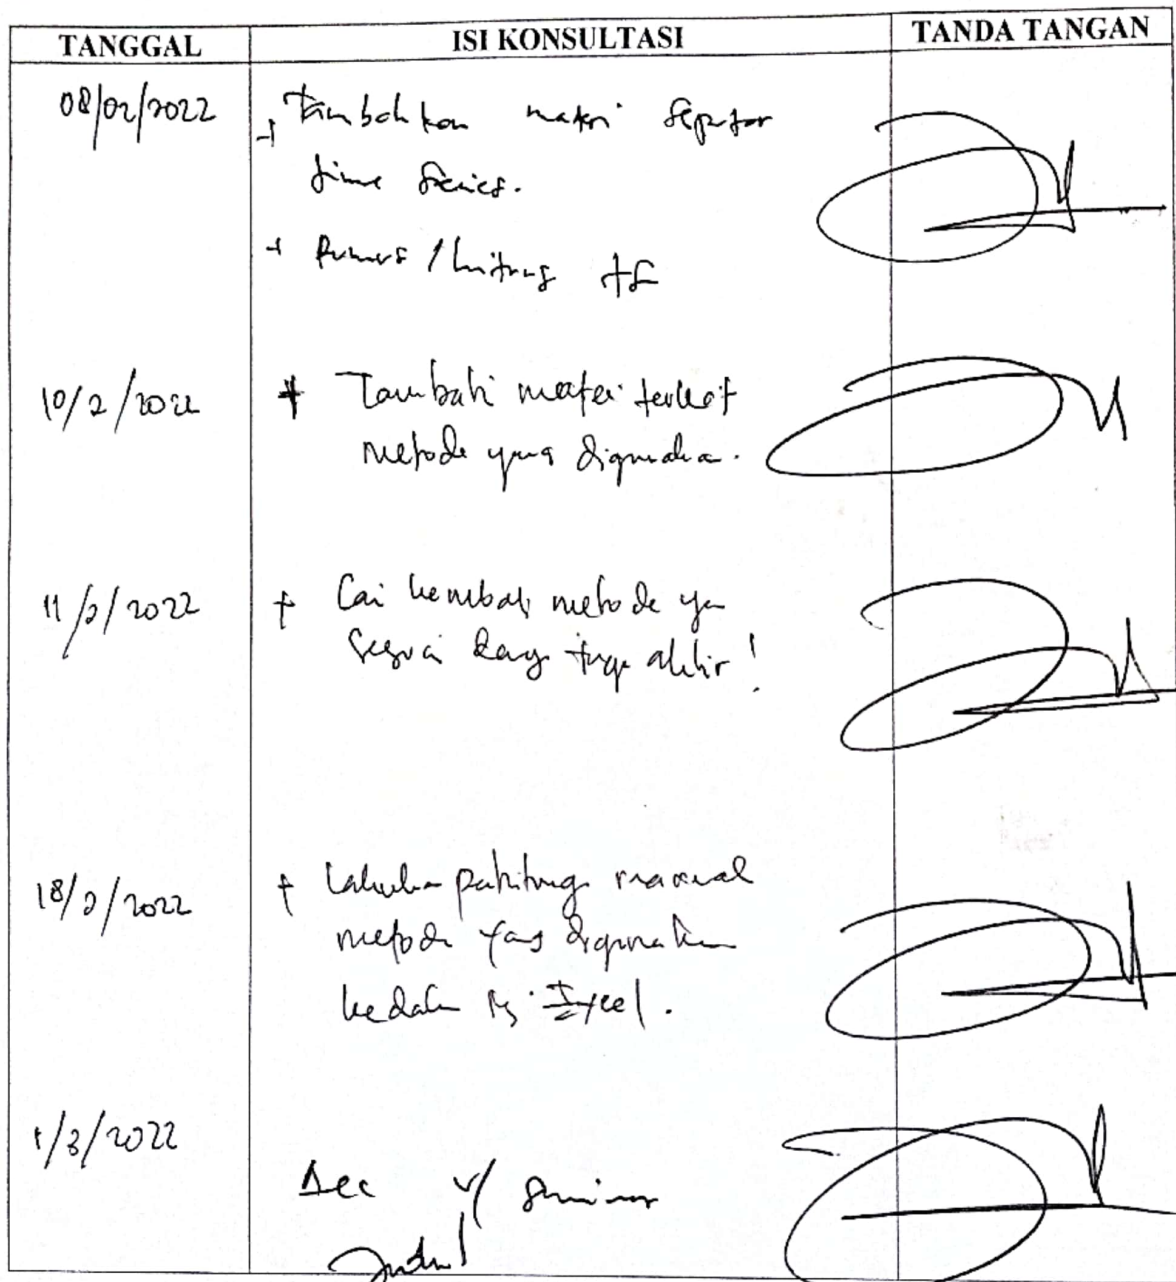 TANGGAL ISI KONSULTASI TANDA TANGAN
08/02/2022 Tambahkan materi seputar
time series.
Rumus / hitung
10/2/2022 + Tambah materi terkait
metode yang digunakan.
11/2/2022 + Cari kembali metode yg
sesuai dang tuga akhir!
18/2/2022 + Lakukan manual
metode yang digunakan
kedalam Ms. Excel.
1/3/2022
Acc u/ seminar
Judul